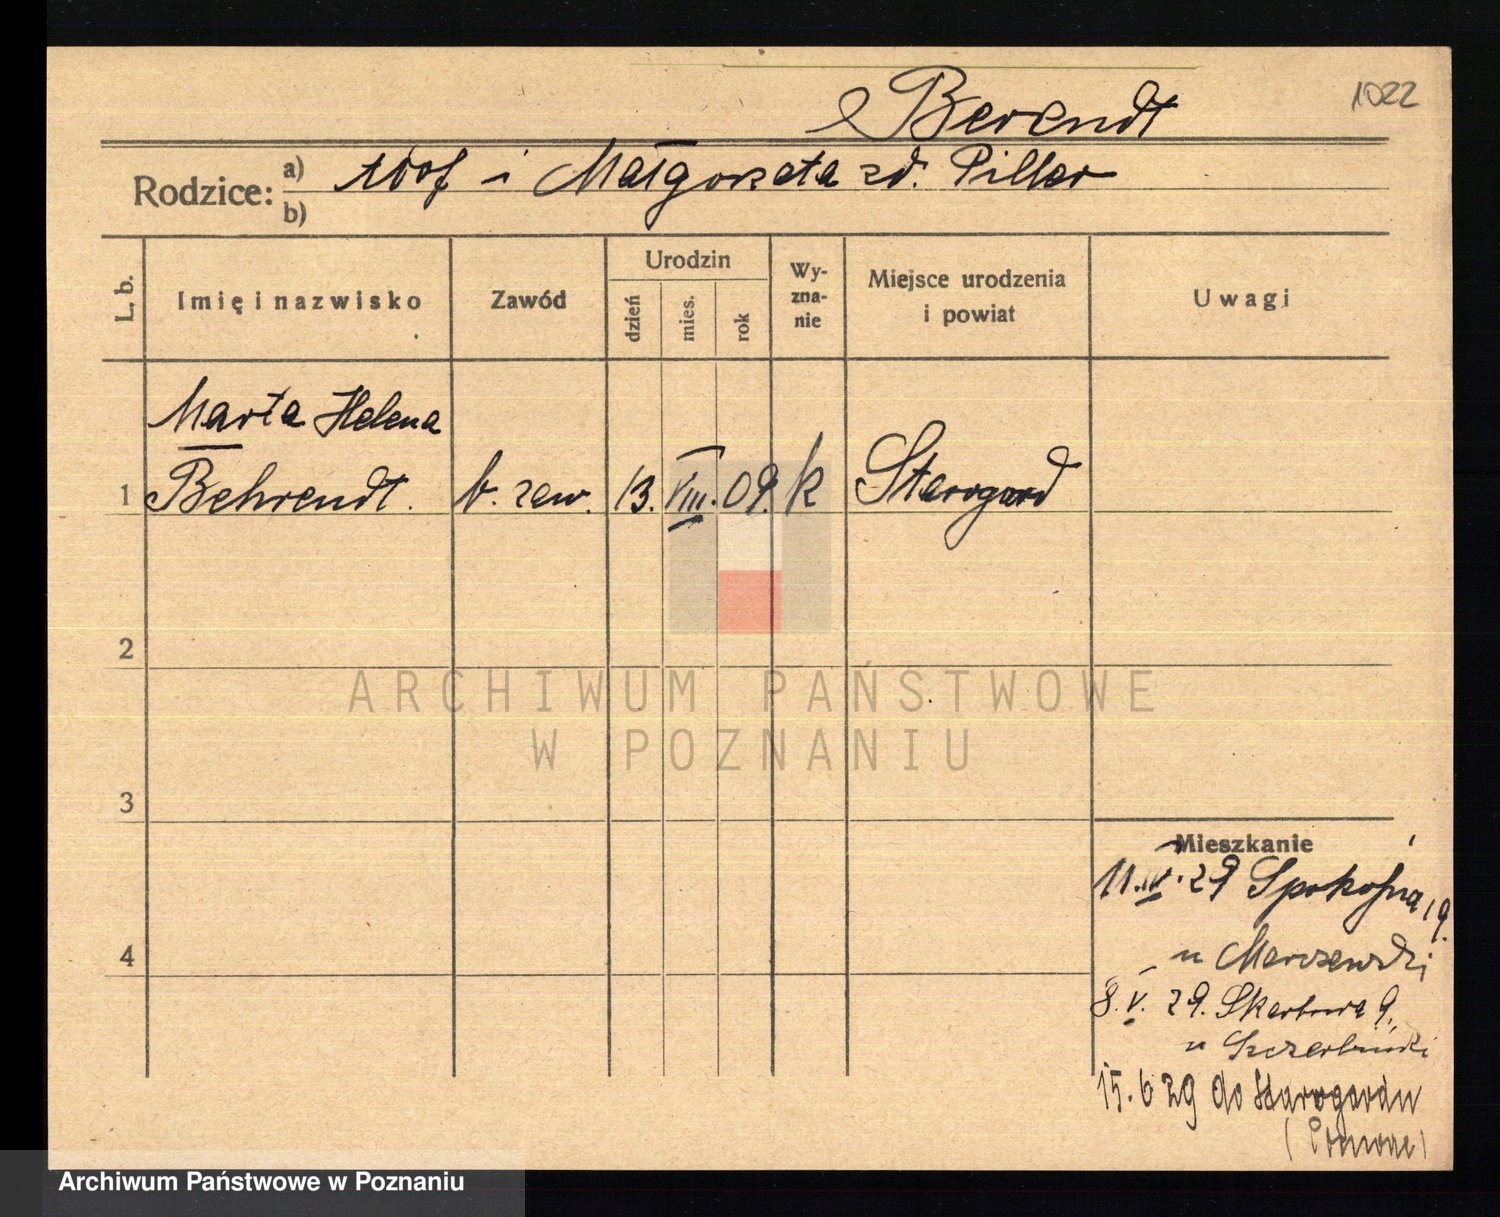 Berendt
1022
Rodzice: a) i Małgorzata zd. Piller
b)
L. b. Imię i nazwisko Zawód Urodzin dzień mies. rok Wy-zna-nie Miejsce urodzenia i powiat Uwagi
Marta Helena
1 Behrendt. b. zaw. 13. VIII. 09. k Starogard
2
ARCHIWUM PAŃSTWOWE
W POZNANIU
3
Mieszkanie
11. IV. 29 Spokojna 19.
4
u Marszewski
8. V. 29. Skarbowa 9,
u
15. 6 29 do Starogardu
(Pomorze)
Archiwum Państwowe w Poznaniu